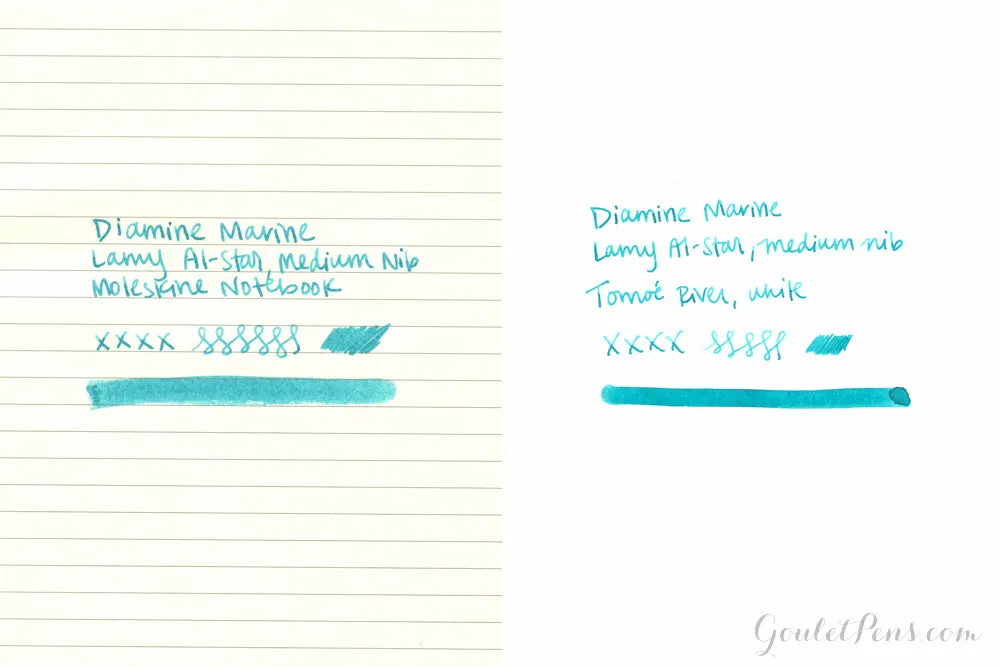 Diamine Marine
Lamy Al-Star, medium Nib
Moleskine Notebook
xxxx
Diamine Marine
Lamy Al-Star, medium nib
Tomoé River, white
xxxx
GouletPens.com